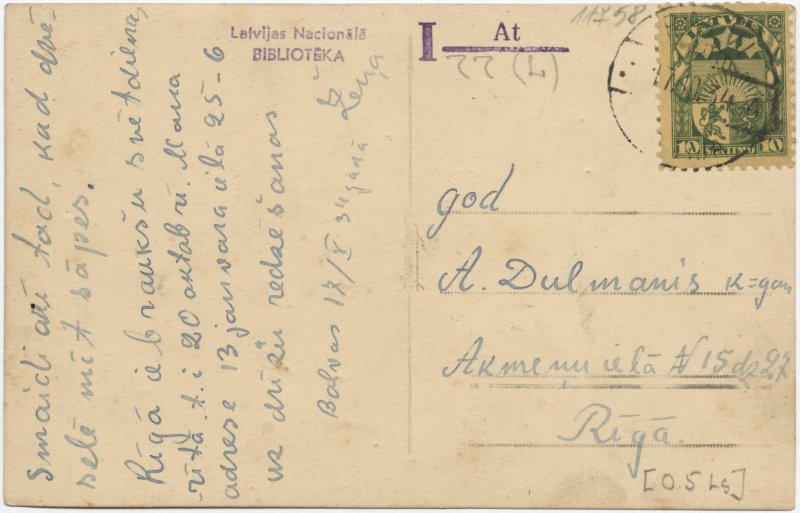 Smaidi arī tad, kad dvē-
selē mīt sāpes.
Rīgā iebraukšu svētdienas
rītā t.i 20 oktobrī. Mana
adrese 13 janvara ielā 25-6
uz drīzu redzēšanos
Balvos 17/X 34 gadā
Latvijas Nacionālā
BIBLIOTĒKA
I At
22 (L)
11758
LATVIJA
10 SANTIMU 10
god
A. Dulmanis k=gam
Akmeņu ielā N 15 dz 27
Rīgā.
[0.5 Ls]